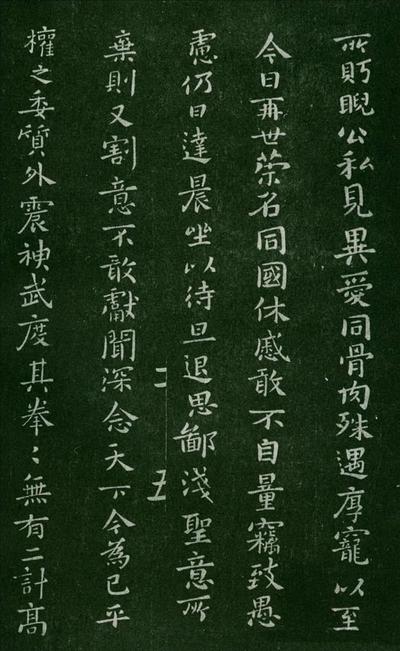 所眄睨公私見異愛同骨肉殊遇厚寵以至
今日再世榮名同國休慼敢不自量竊致愚
慮仍日達晨坐以待旦退思鄙淺聖意所
二 五
棄則又割意不敢獻聞深念天下今為已平
權之委質外震神武度其拳〻無有二計高